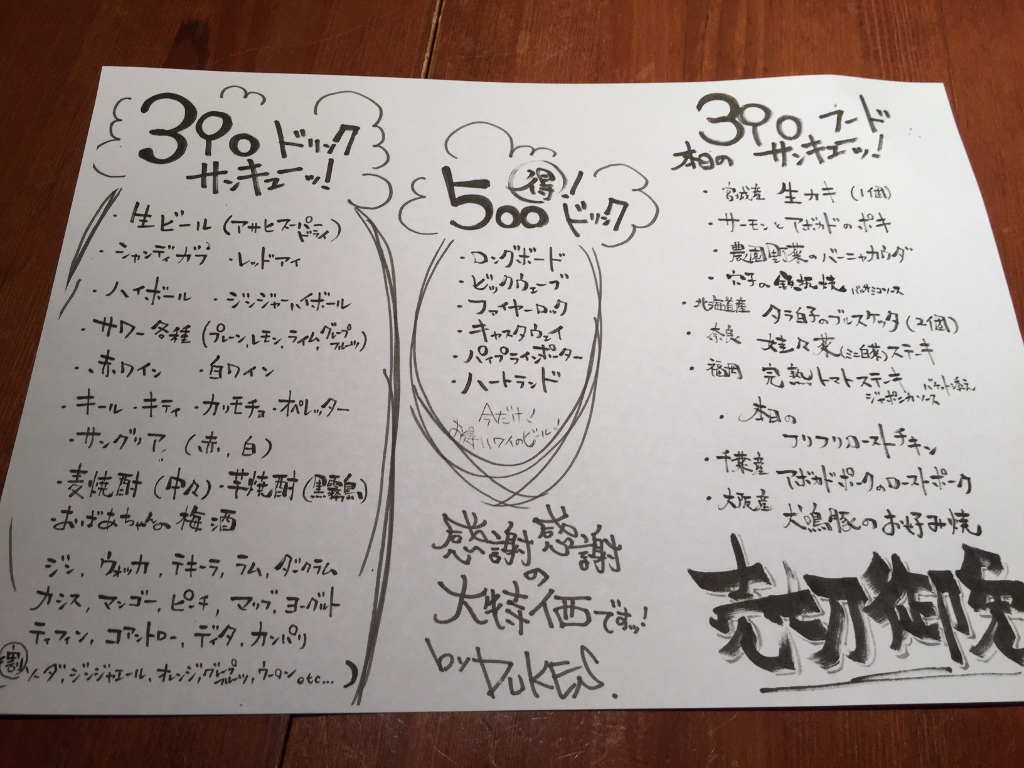 390 ドリンク
サンキューッ!
・生ビール (アサヒスーパードライ)
・シャンディガフ ・レッドアイ
・ハイボール ・ジンジャーハイボール
・サワー各種 (プレーン,レモン,ライム,グレープフルーツ)
・赤ワイン ・白ワイン
・キール ・キティ ・カリモチョ ・オペレッター
・サングリア (赤,白)
・麦焼酎 (中々) ・芋焼酎 (黒霧島)
・おばあちゃんの梅酒
ジン, ウォッカ, テキーラ, ラム, ダークラム
カシス, マンゴー, ピーチ, マリブ, ヨーグルト
ティフィン, コアントロー, ディタ, カンパリ
割 ソーダ,ジンジャエール,オレンジ,グレープフルーツ,ウーロン etc... )
得!
500 ドリンク
・ロングボード
・ビックウェーブ
・ファイヤーロック
・キャスタウェイ
・パイプラインポーター
・ハートランド
今だけ!
お得ハワイのビール!
感謝感謝
の
大特価ですッ!
by DUKES.
390 フード
本日の サンキューッ!
・宮城産 生カキ (1個)
・サーモンとアボカドのポキ
・農園野菜のバーニャカウダ
・穴子の鉄板焼 バルサミコソース
・北海道産 タラ白子のブルスケッタ (2個)
・奈良 娃々菜(ミニ白菜)ステキ
・福岡 完熟トマトステーキ バケット添え
ジャポンカソース
・本日の
フリフリローストチキン
・千葉産 アボカドポークのローストポーク
・大阪産 犬鳴豚のお好み焼
売切御免